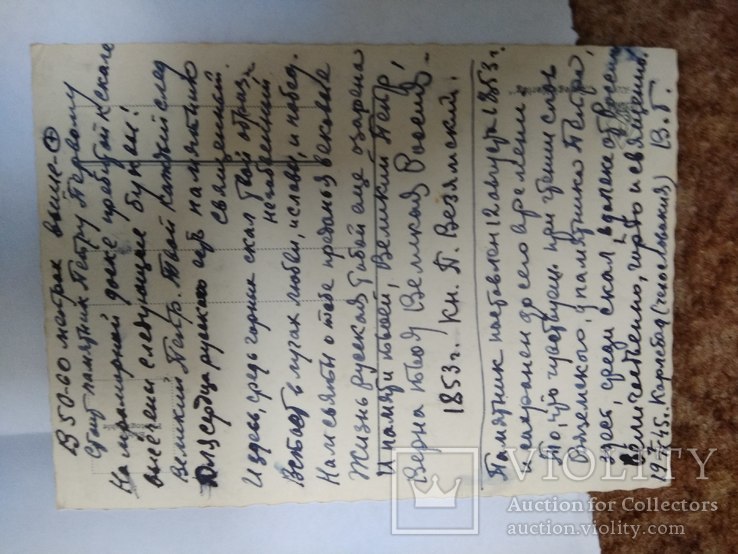 В 50-60 метрах выше
стоит памятник Петру Первому
На мраморной доске прибитой к скале
высечены следующие буквы:
Великий Петр. Твой каждый след
Для сердца русского есть памятник
священный.
И здесь, средь горных скал твой образ
незабвенный
Встает в лучах любви, и славы, и побед.
Нам святы о тебе преданья вековые
Жизнь русская тобой еще озарена
И памяти твоей, Великий Петр,
Верна твоя Великая Россия.
1853 г. Кн. П. Вяземский.
Памятник поставлен 12 августа 1853 г.
и сохранен до сего времени
То, что чувствуешь при чтении слов
Вяземского, у памятника Петра,
здесь среди скал, вдалеке от Россеи
величественно, и свящённо.
Карлсбад В. Г.
VIOLITY
Auction for Collectors
auction.violity.com